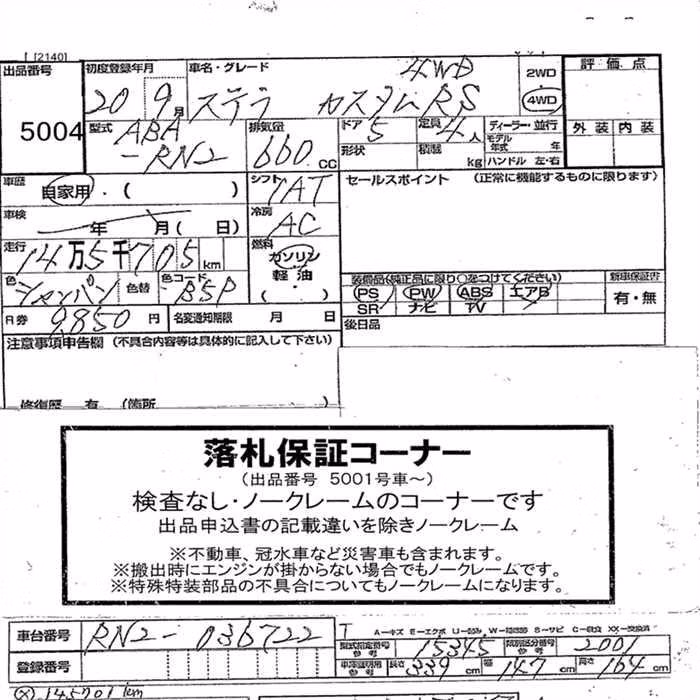 [2140]
出品番号 初度登録年月 車名・グレード 4WD 2WD 評価点
20 9月 ステラ カスタムRS 4WD
5004 型式 ABA-RN2 排気量 660 CC ドア 5 定員 4人 ディーラー・並行 外装 内装
形状 積載 kg モデル年式 年 ハンドル 左・右
車歴 自家用・( ) シフト 7AT セールスポイント (正常に機能するものに限ります)
車検 年 月( 日) 冷房 AC
走行 14万5千705km 燃料 ガソリン 軽油 ( ・ )
色 シャンパン 色替 色コード BSP 装備品(純正品に限り○をつけてください) 新車保証書
PS PW ABS エアB 有・無
SR ナビ TV
R券 9850円 名変通知期限 月 日 後日品
注意事項申告欄 (不具合内容等は具体的に記入して下さい)
修復歴 有 (箇所
落札保証コーナー
(出品番号 5001号車～)
検査なし・ノークレームのコーナーです
出品申込書の記載違いを除きノークレーム
※不動車、冠水車など災害車も含まれます。
※搬出時にエンジンが掛からない場合でもノークレームです。
※特殊特装部品の不具合についてもノークレームになります。
車台番号 RN2-036722 A-キズ E-エクボ
型式指定番号 参考 15345 類別区分番号 参考 2001
登録番号 車庫証明用 参考 長さ 339 cm 幅 147 cm 高さ 164 cm
145701km